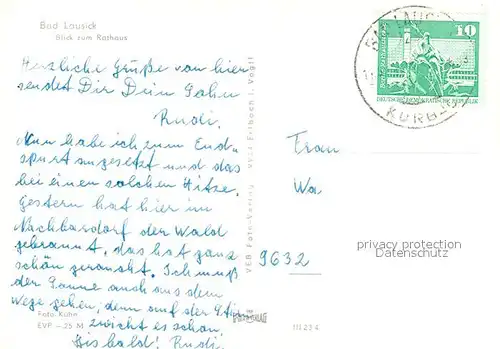 Bad Lausick
Blick zum Rathaus
Herzliche Grüße von hier
sendet Dir Dein Sohn
Rudi.
Nun habe ich zum End-
spurt angesetzt und das
bei einer solchen Hitze.
Gestern hat hier im
Nachbarsdorf der Wald
gebrannt, das hat ganz
schön geraucht. Ich muß
der Sonne auch aus dem
Wege gehen, denn auf der Stirn
zwickt es schon.
Bis bald! Rudi.
Foto: Kühn
EVP –.25 M
VEB Foto-Verlag Erlbach i. Vogtl
III 23 4
10
DEUTSCHE DEMOKRATISCHE REPUBLIK
BAD LAUSICK
KURB
Frau
Wa
9632
privacy protection
Datenschutz